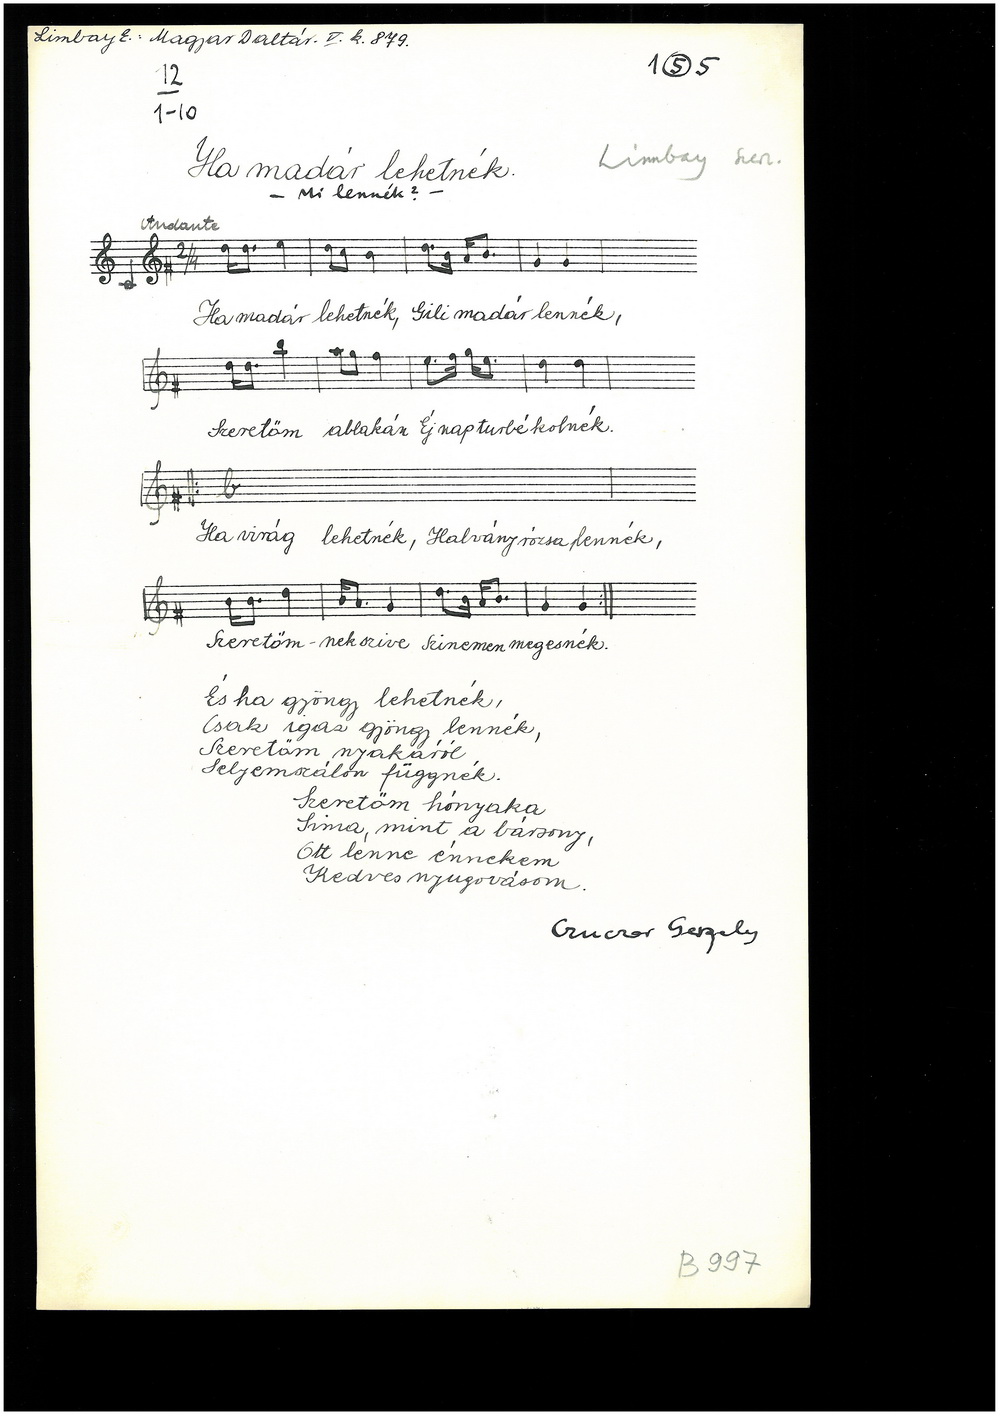 Limbay E.: Magyar Daltár. V. k. 879.
12
1-10
1 5 5
Ha madár lehetnék.
Limbay szer.
- Mi lennék? -
Andante
2/4
Ha madár lehetnék, Gili madár lennék,
Szeretőm ablakán Éj nap turbékolnék.
b
Ha virág lehetnék, Halvány rózsa lennék,
Szeretőm - nek szive Szinemen megesnék.
És ha gyöngy lehetnék,
Csak igaz gyöngy lennék,
Szeretőm nyakáról
Selyemszálon függnék.
Szeretőm hónyaka
Sima, mint a bársony,
Ott lenne énnekem
Kedves nyugovásom.
Czuczor Gergely
B 997